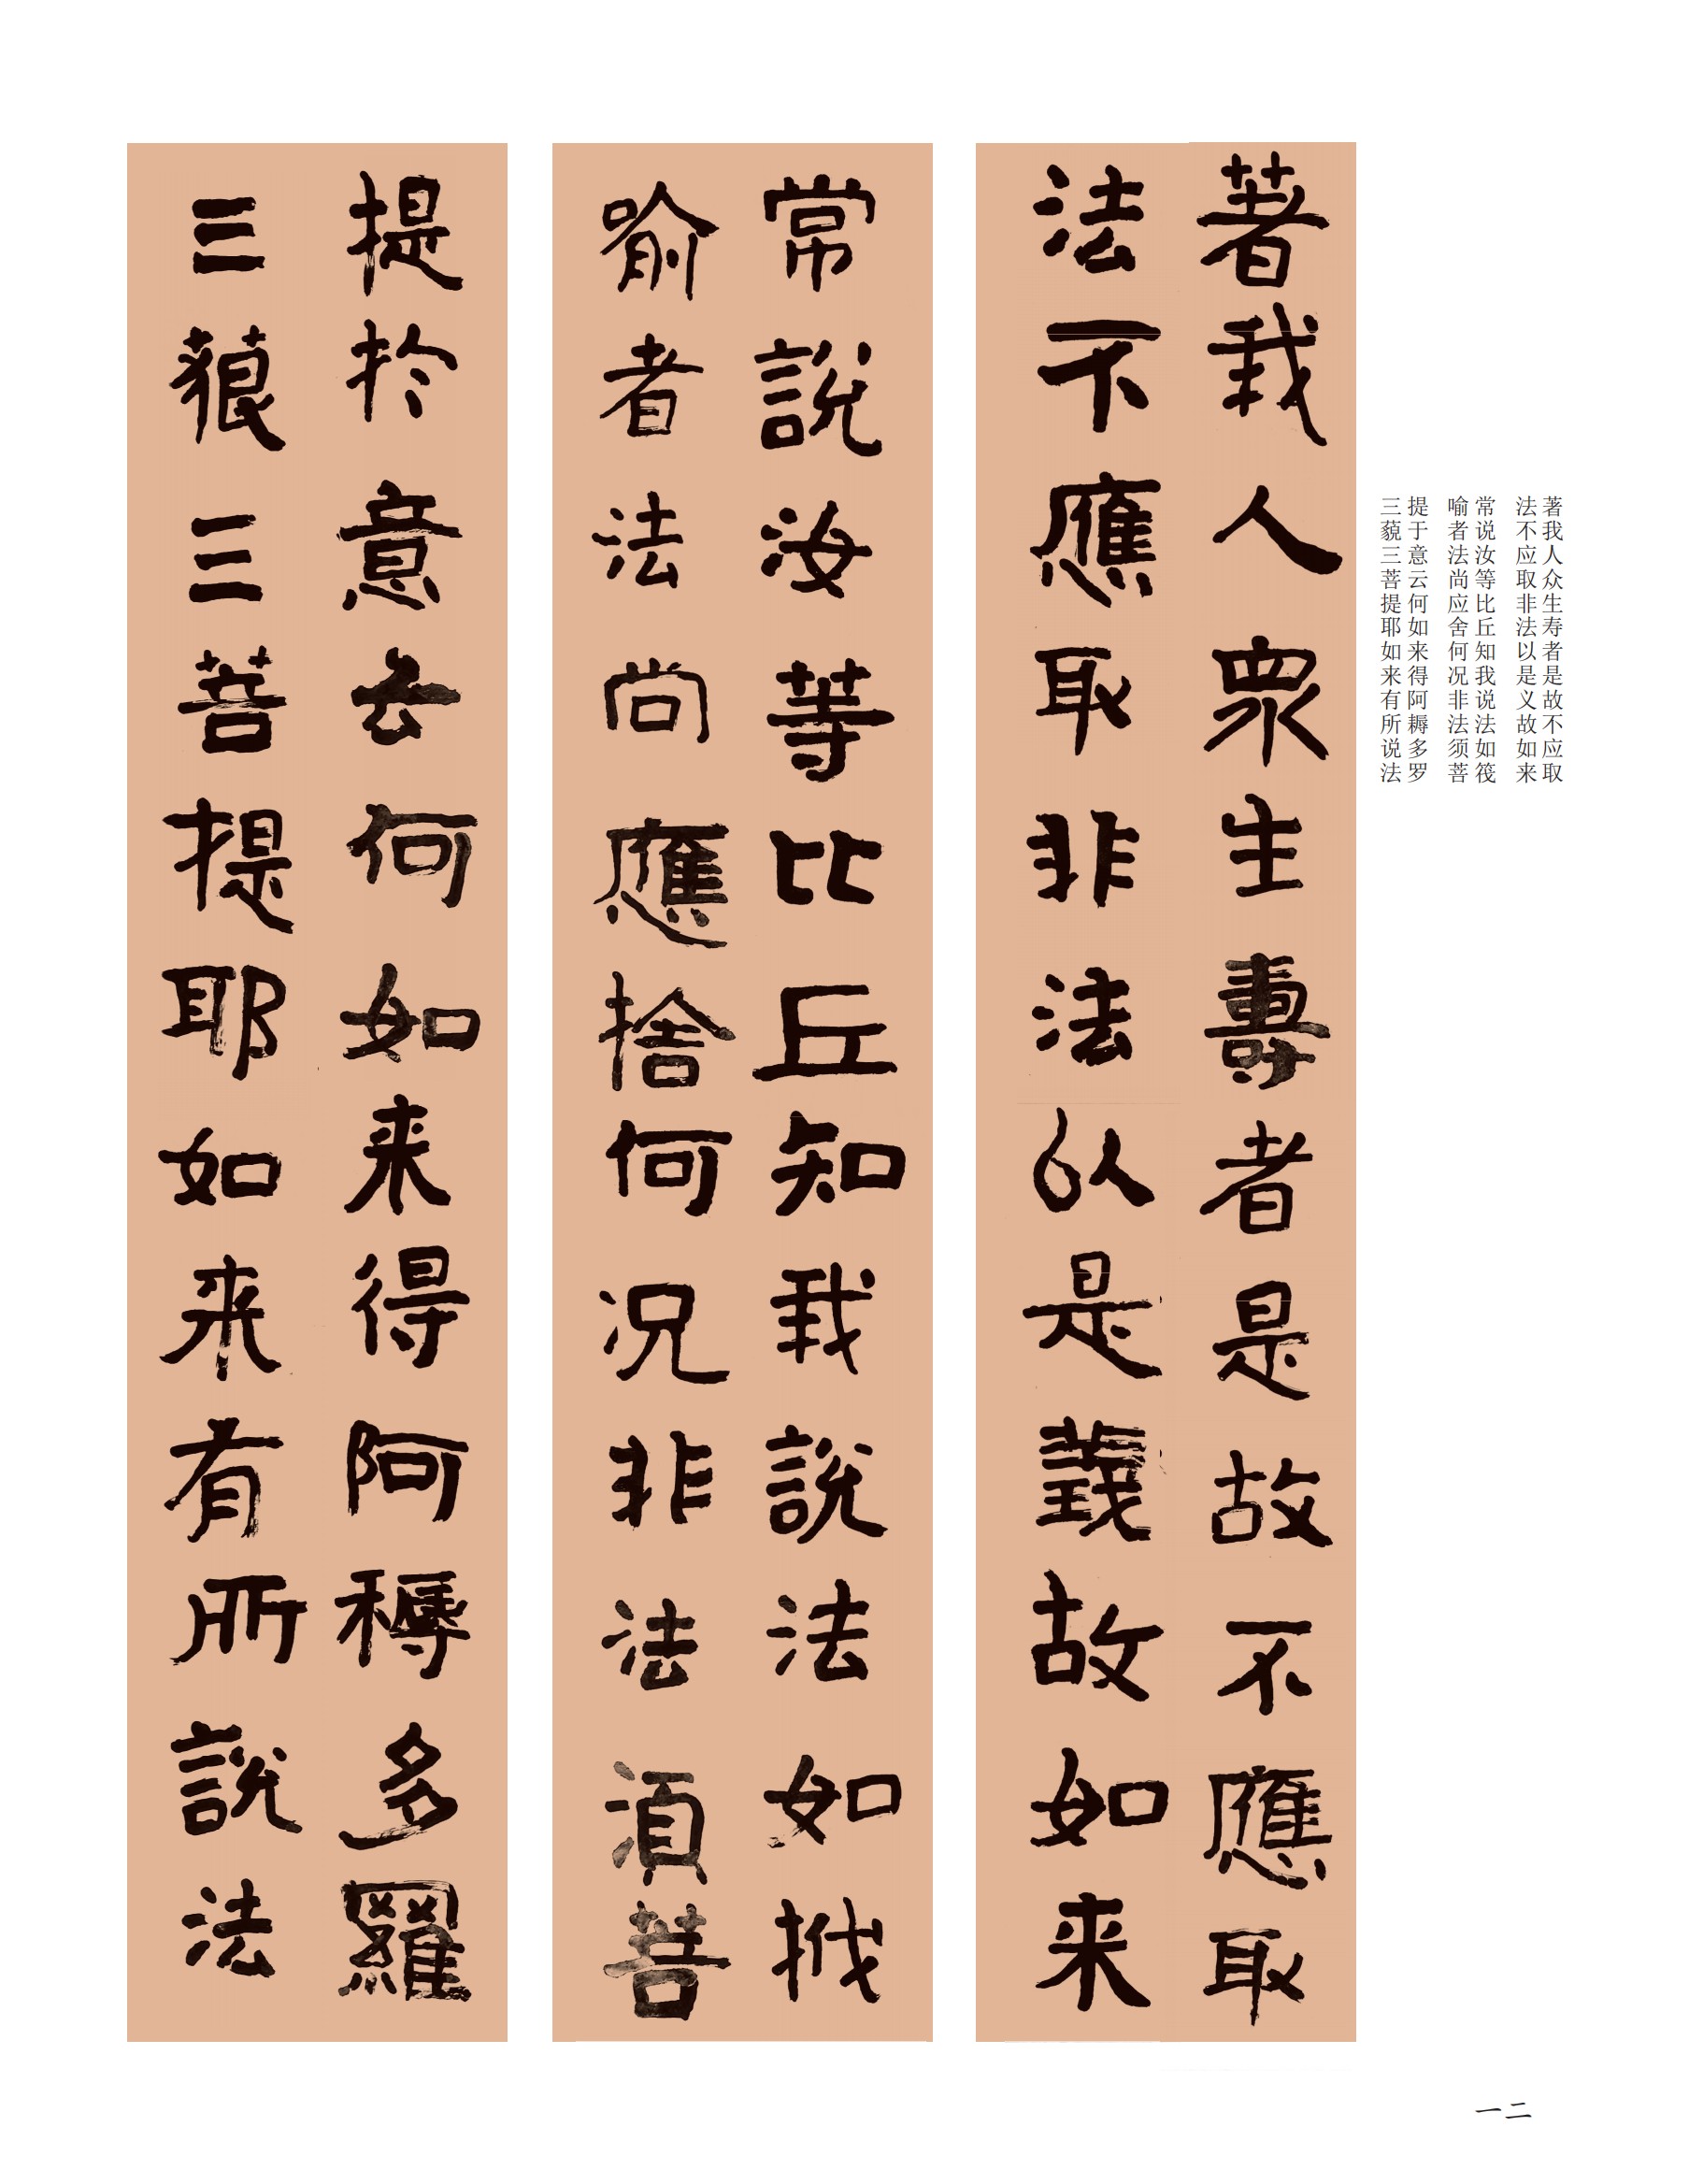 著我人衆生壽者是故不應取
法不應取非法以是義故如来
常說汝等比丘知我說法如栰
喻者法尚應捨何况非法須菩
提於意云何如来得阿耨多羅
三藐三菩提耶如来有所說法
著我人众生寿者是故不应取
法不应取非法以是义故如来
常说汝等比丘知我说法如筏
喻者法尚应舍何况非法须菩
提于意云何如来得阿耨多罗
三藐三菩提耶如来有所说法
一二